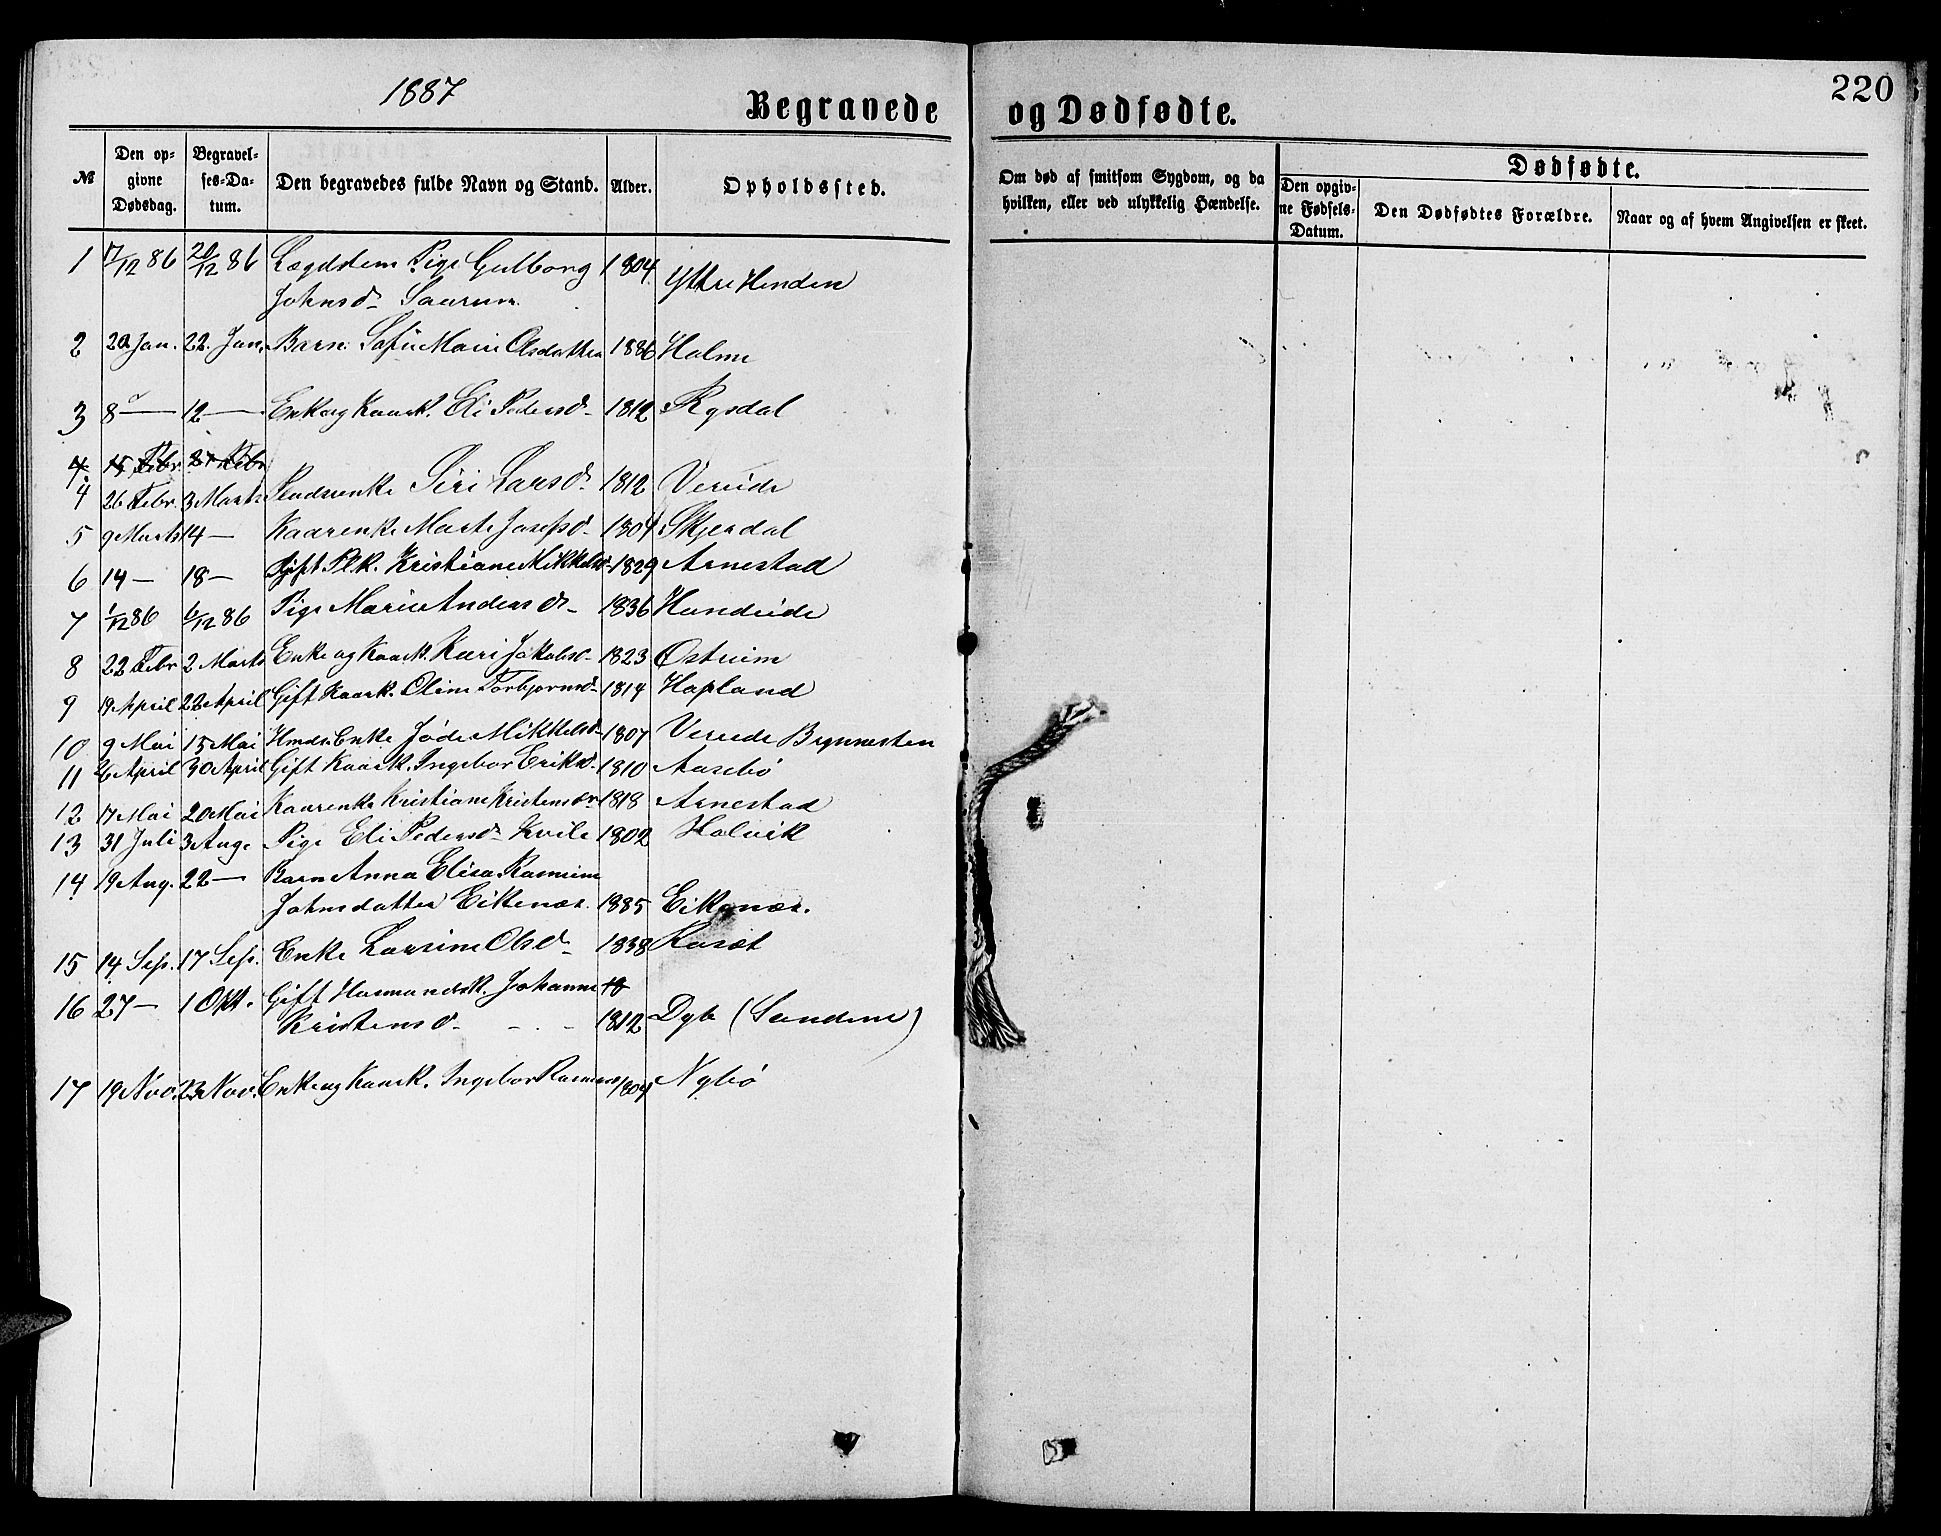 1887
220
Begravede og Dødfødte.
№
Den opgivne Dødsdag.
Begravelses-Datum.
Den begravedes fulde Navn og Stand.
Alder.
Opholdssted.
Om død af smitsom Sygdom, og da hvilken, eller ved ulykkelig Hændelse.
Dødfødte.
Den opgivne Fødsels-Datum.
Den Dødfødtes Forældre.
Naar og af hvem Angivelsen er skeet.
1 17/12 86 20/12 86 Lægdslem Pige Gulborg 1804 Yttre Henden
Johnsd. Saurum
2 20 Jan. 22. Jan. Barn Sofie Marie Olsdatter 1886 Holme
3 8 — 12 — Enke og Kaark. Eli Pedersd. 1812 Rysdal
4. 15 Febr. 21 Febr.
4 26 Febr. 3 Marts Siri Larsd. 1812 Vereide
5 9 Marts 14 — Kaarenke Marte Josefsd. 1804 Skjerdal
6 14 — 18 — Gift Plk. Kristiane Mikkelsd. 1829 Arnestad
7 1/12 86 6/12 86 Pige Marie Andersd. 1836 Hundeide
8 22 Febr 2 Marts Enke og Kaark. Kari Jakobsd. 1823 Østreim
9 19 April 22 April Gift Kaark. Oline Torbjørnsd. 1814 Hopland
10 9 Mai 15 Mai Hmds. Enke Jøde Mikkelsd. 1807 Vereide Brynnesten
11 26 April 30 April Gift Kaark. Ingebor Eriksd. 1810 Aasebø
12 17 Mai 20 Mai Kaarenke Kristiane Kristensdr 1818 Arnestad
13 31 Juli 3 Aug. Pige Eli Pedersd. Kvile 1802 Holvik
14 19 Aug. 22 — Barn Anna Elisa Rasmine
Johnsdatter Eikenæs. 1885 Eikenæs.
15 14 Sep. 17 Sep. Enke Larsine Olsd. 1838
16 27 — 1 Okt. Gift Husmandsk. Johanne 18
Kristensd. 1812 Dyb (Sandene)
17 19 Nov. 23 Nov. Enke og Kaark. Ingebor Rasmusd. 1804 Nybø